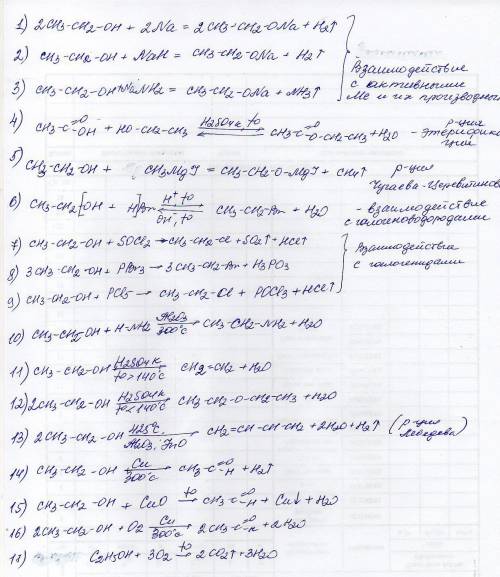 1) 2CH3-CH2-OH + 2Na = 2CH3-CH2-ONa + H2↑
2) CH3-CH2-OH + NaH = CH3-CH2-ONa + H2↑
3) CH3-CH2-OH+NaNH2 = CH3-CH2-ONa + NH3↑
Взаимодействие
с активными
Ме и их производными
4) CH3-C=O OH + HO-CH2-CH3 H2SO4к, t° ⇄ CH3-C=O O-CH2-CH3 + H2O - р-ция Этерификации
5) CH3-CH2-OH + CH3MgI = CH3-CH2-O-MgI + CH4↑ р-ция
Чугаева-Церевитинова
6) CH3-CH2[OH + H]Br H+, t° ⇄ OH-, t° CH3-CH2-Br + H2O
- взаимодействие
с галогеноводородами
7) CH3-CH2-OH + SOCl2 → CH3-CH2-Cl + SO2↑ + HCl↑
8) 3CH3-CH2-OH + PBr3 → 3CH3-CH2-Br + H3PO3
9) CH3-CH2-OH + PCl5 → CH3-CH2-Cl + POCl3 + HCl↑
Взаимодействие
с галогенидами
10) CH3-CH2-OH + H-NH2 Al2O3 → 300°C CH3-CH2-NH2 + H2O
11) CH3-CH2-OH H2SO4к → t°>140°C CH2=CH2 + H2O
12) 2CH3-CH2-OH H2SO4к → t°<140°C CH3-CH2-O-CH2-CH3 + H2O
13) 2CH3-CH2-OH 425°C → Al2O3, ZnO CH2=CH-CH=CH2 + 2H2O + H2↑ (р-ция Лебедева)
14) CH3-CH2-OH Cu → 300°C CH3-C=O H + H2↑
15) CH3-CH2-OH + CuO t° → CH3-C=O H + Cu↓ + H2O
16) 2CH3-CH2-OH + O2 Cu → 300°C 2CH3-C=O H + 2H2O
C2H5OH + 3O2 t° → 2CO2↑ + 3H2O